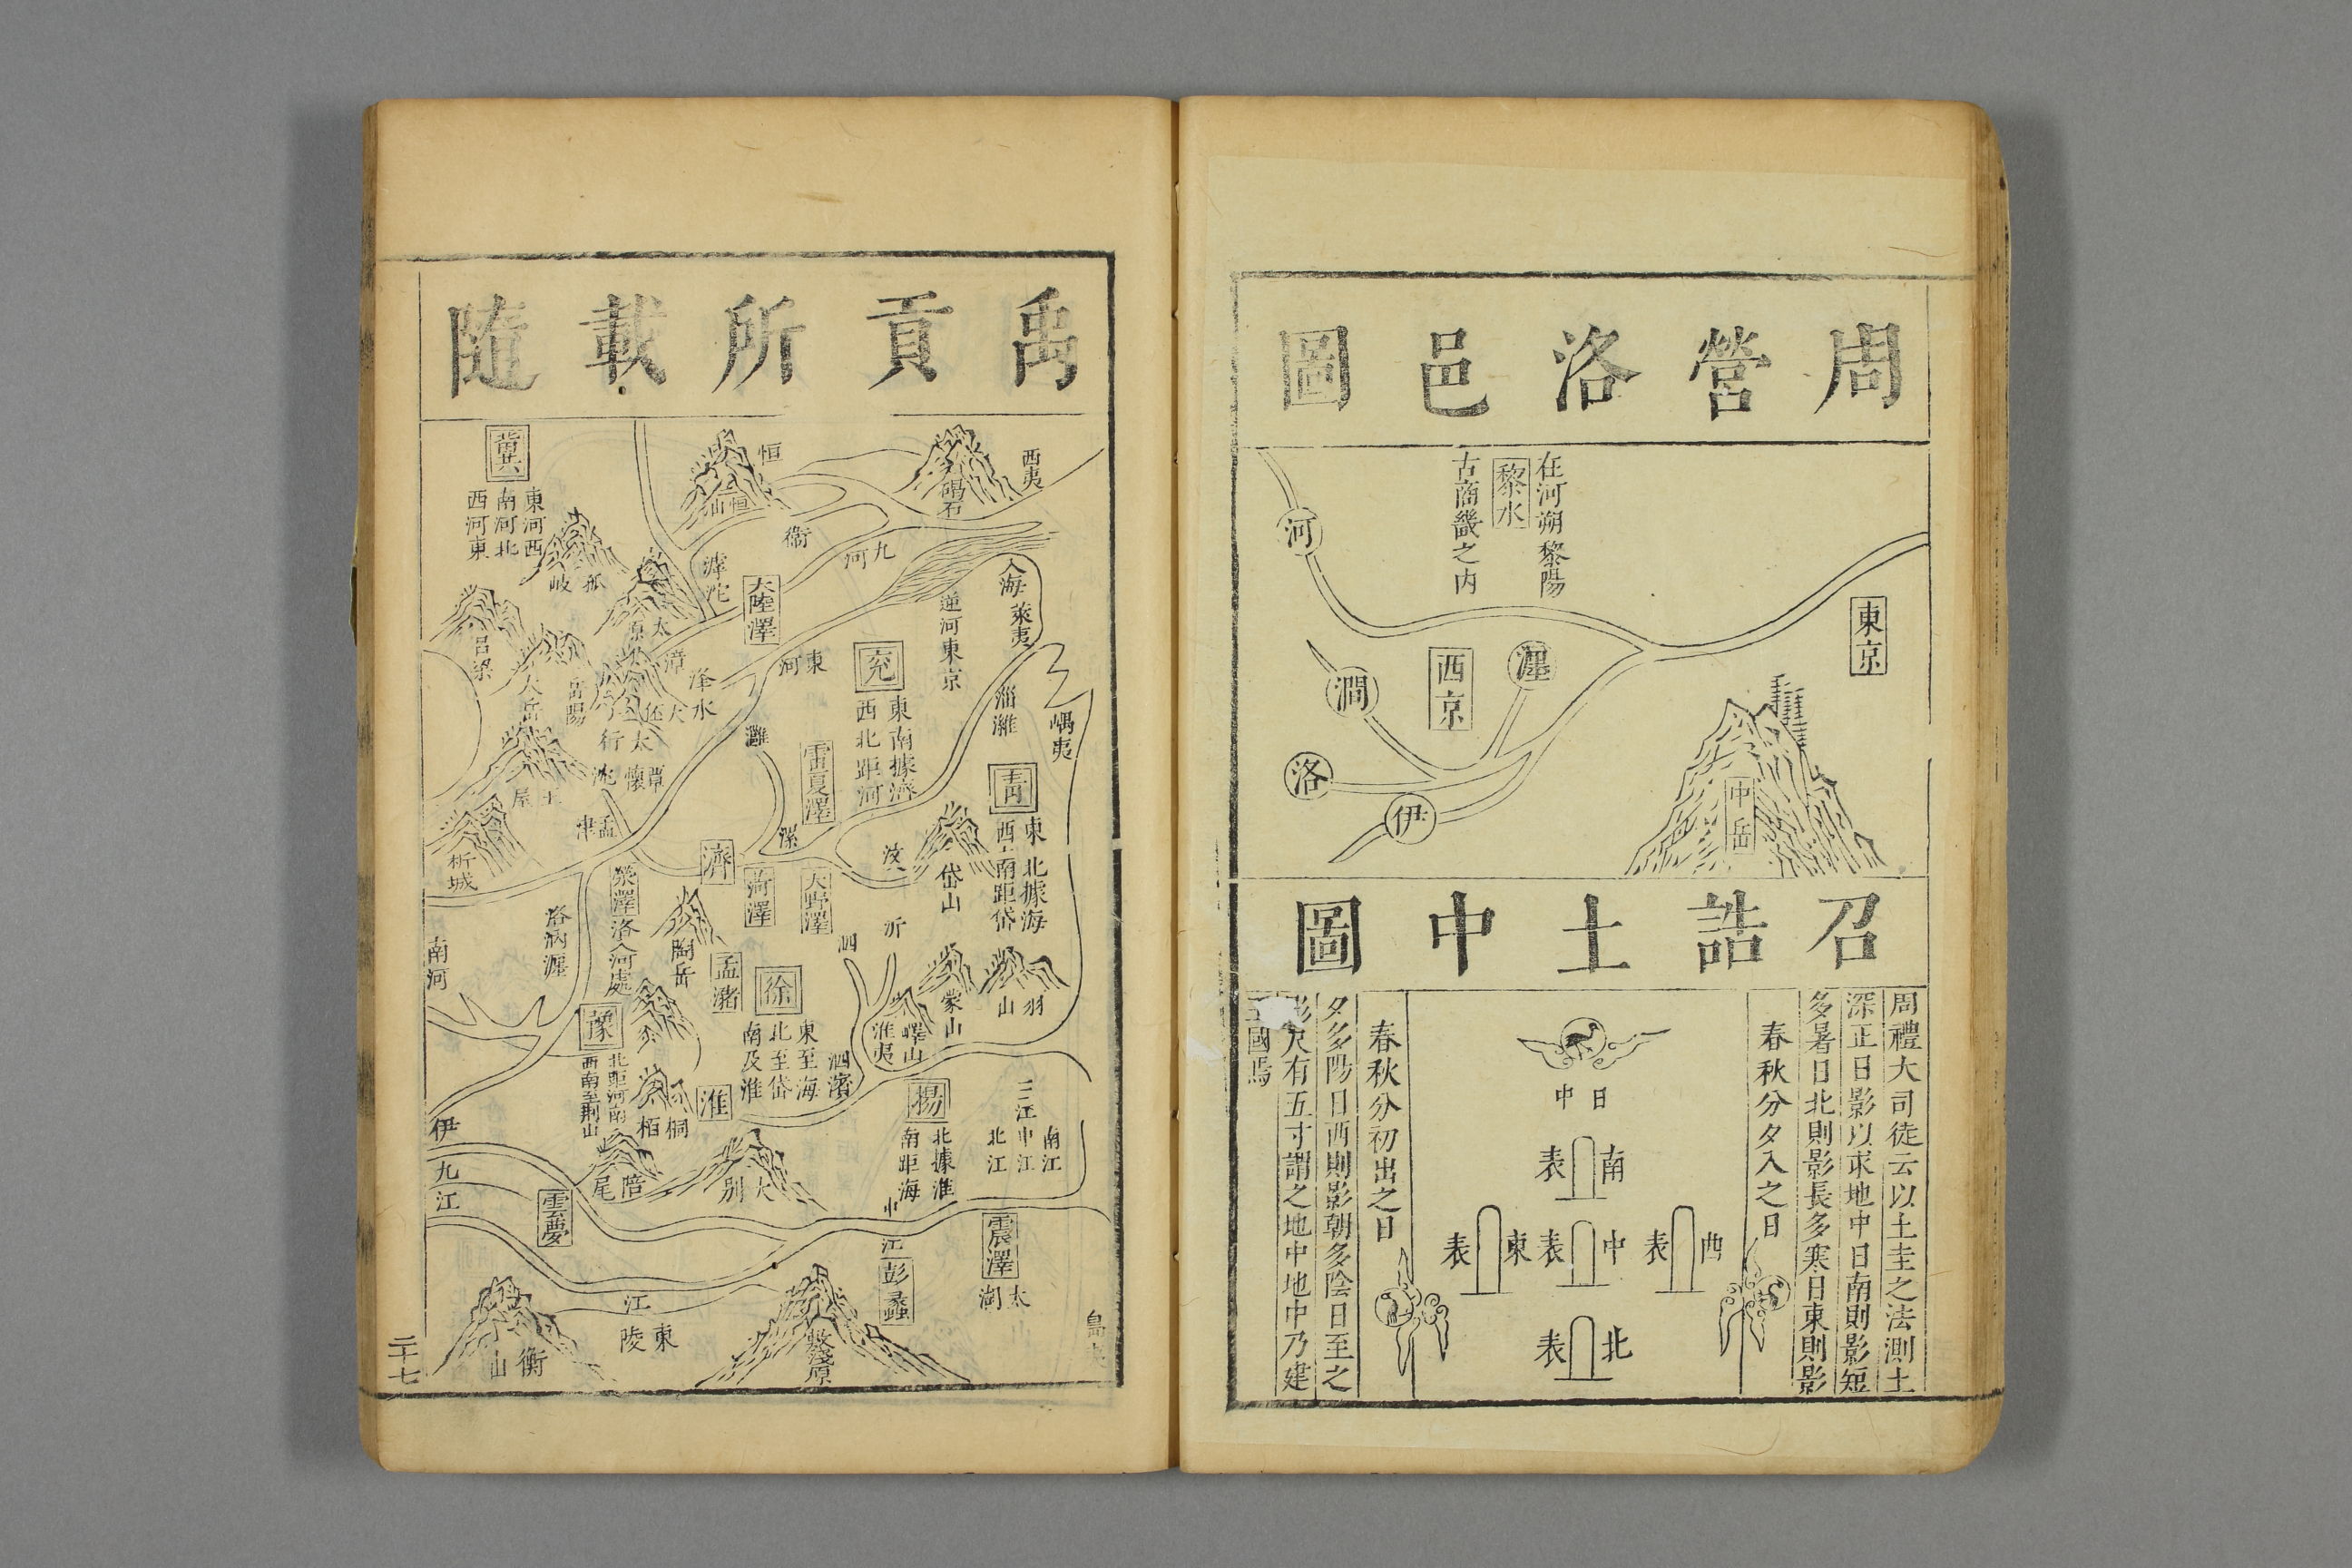 周營洛邑圖
在河朔黎陽
黎水
古商畿之內
東京
河
瀍
西京
澗
洛
伊
中岳
召誥土中圖
周禮大司徒云以土圭之法測土
深正日影以求地中日南則影短
多暑日北則影長多寒日東則影
春秋分夕入之日
日中
南表
西表
中表
東表
北表
春秋分初出之日
夕多陽日西則影朝多陰日至之
影尺有五寸謂之地中地中乃建
王國焉
禹貢所載隨
西夷
碣石
恒
恒山
衛
九河
滹沱
大陸澤
冀
東河西
南河北
西河東
狐岐
太原
呂梁
太岳
岳陽
漳
洚水
大伾
太行
覃懷
沇
王屋
孟津
析城
南河
入海
萊夷
逆河東京
東河
兗
東南據濟
西北距河
淄濰
嵎夷
青
東北據海
西南距岱
灉
雷夏澤
漯
汶
岱山
濟
菏澤
大野澤
滎澤
洛入河處
洛汭瀍
陶岳
孟瀦
沂
泗
蒙山
羽山
嶧山
淮夷
徐
東至海
北至岱
南及淮
泗濱
豫
北距河南
西南至荊山
淮
桐栢
伊
楊
北據淮
南距海
三江
南江
中江
北江
陪尾
大別
九江
雲夢
中江
震澤
太湖
彭蠡
江
東陵
衡山
敷淺原
島夷
二十七